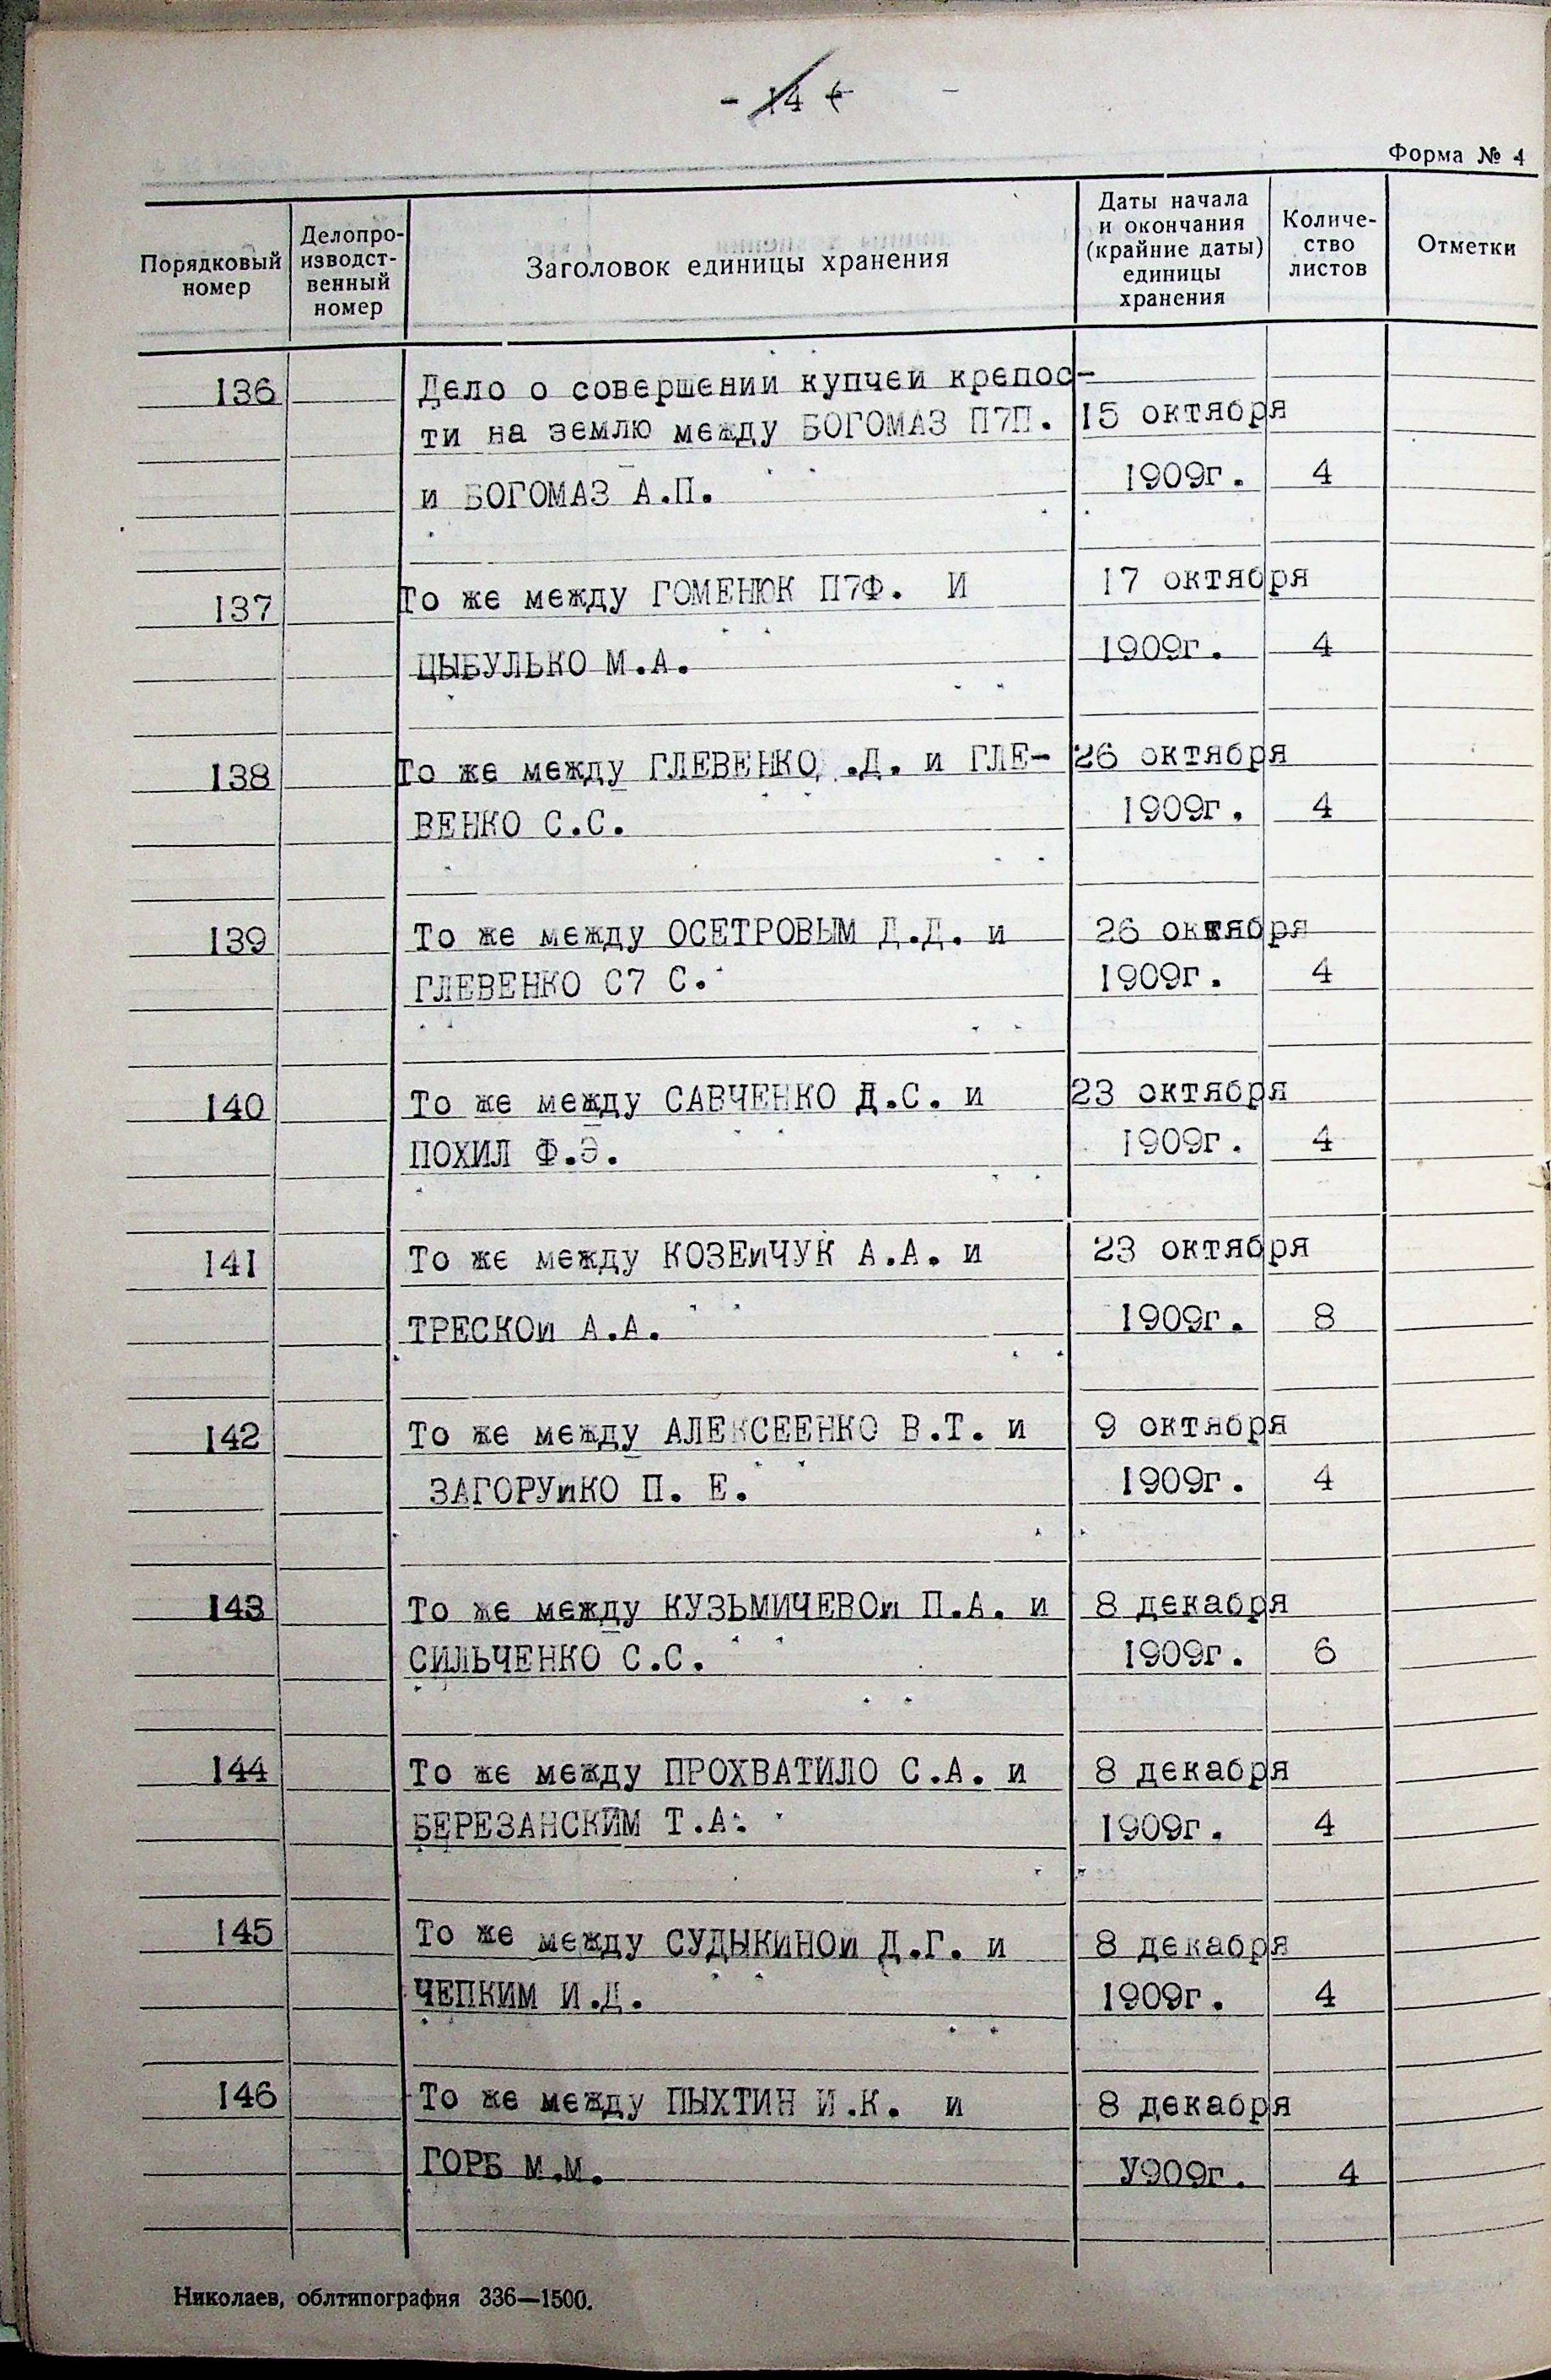 - 14 -
Форма № 4
Порядковый номер
Делопро-
изводст-
венный
номер
Заголовок единицы хранения
Даты начала
и окончания
(крайние даты)
единицы
хранения
Количе-
ство
листов
Отметки
136 Дело о совершении купчеи крепос-
ти на землю между БОГОМАЗ П7П. 15 октября
и БОГОМАЗ А.П. 1909г. 4
137 То же между ГОМЕНЮК П7Ф. И 17 октября
ЦЫБУЛЬКО М.А. 1909г. 4
138 То же между ГЛЕВЕНКО .Д. и ГЛЕ- 26 октября
ВЕНКО С.С. 1909г. 4
139 То же между ОСЕТРОВЫМ Д.Д. и 26 октября
ГЛЕВЕНКО С7 С. 1909г. 4
140 То же между САВЧЕНКО Д.С. и 23 октября
ПОХИЛ Ф.Э. 1909г. 4
141 То же между КОЗЕиЧУК А.А. и 23 октября
ТРЕСКОи А.А. 1909г. 8
142 То же между АЛЕКСЕЕНКО В.Т. и 9 октября
ЗАГОРУиКО П. Е. 1909г. 4
143 То же между КУЗЬМИЧЕВОи П.А. и 8 декабря
СИЛЬЧЕНКО С.С. 1909г. 6
144 То же между ПРОХВАТИЛО С.А. и 8 декабря
БЕРЕЗАНСКИМ Т.А. 1909г. 4
145 То же между СУДЫКИНОи Д.Г. и 8 декабря
ЧЕПКИМ И.Д. 1909г. 4
146 То же между ПЫХТИН И.К. и 8 декабря
ГОРБ М.М. У909г. 4
Николаев, облтипография 336—1500.